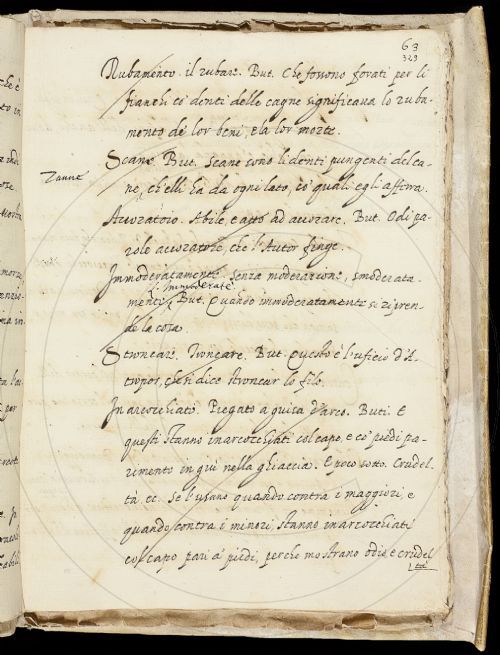 63
323
Rubamento. il rubar. But. Che fossono forati per li
fianchi co' denti delle cagne significava lo ruba-
mento de' lor beni, e la lor morte.
Scane. But. Scane sono li denti pungenti del ca-
Zanne
ne, ch'elli ha da ogni lato, co' quali egli afferra.
Abile, e atto ad But. O di pa-
role che l'Autor finge.
Immoderatamente. Senza moderazione, smoderata-
immoderate
mente. But. Quando immoderatamente si ripren-
de la cosa.
Stroncar. Troncare. But. Questo è l'uficio d'A-
tropos, che si dice stroncar lo filo.
Inarcocchiato. Piegato a guisa d'arco. Buti. E
questi stanno inarcocchiati col capo, e co' piedi pa-
rimento in giù nella ghiaccia. E poco sotto. Crudel-
tà, ec. Se l'usano quando contra i maggiori, e
quando contra i minori, stanno inarcocchiati
col capo pari a' piedi, perche mostrano odio, e crudel
tà